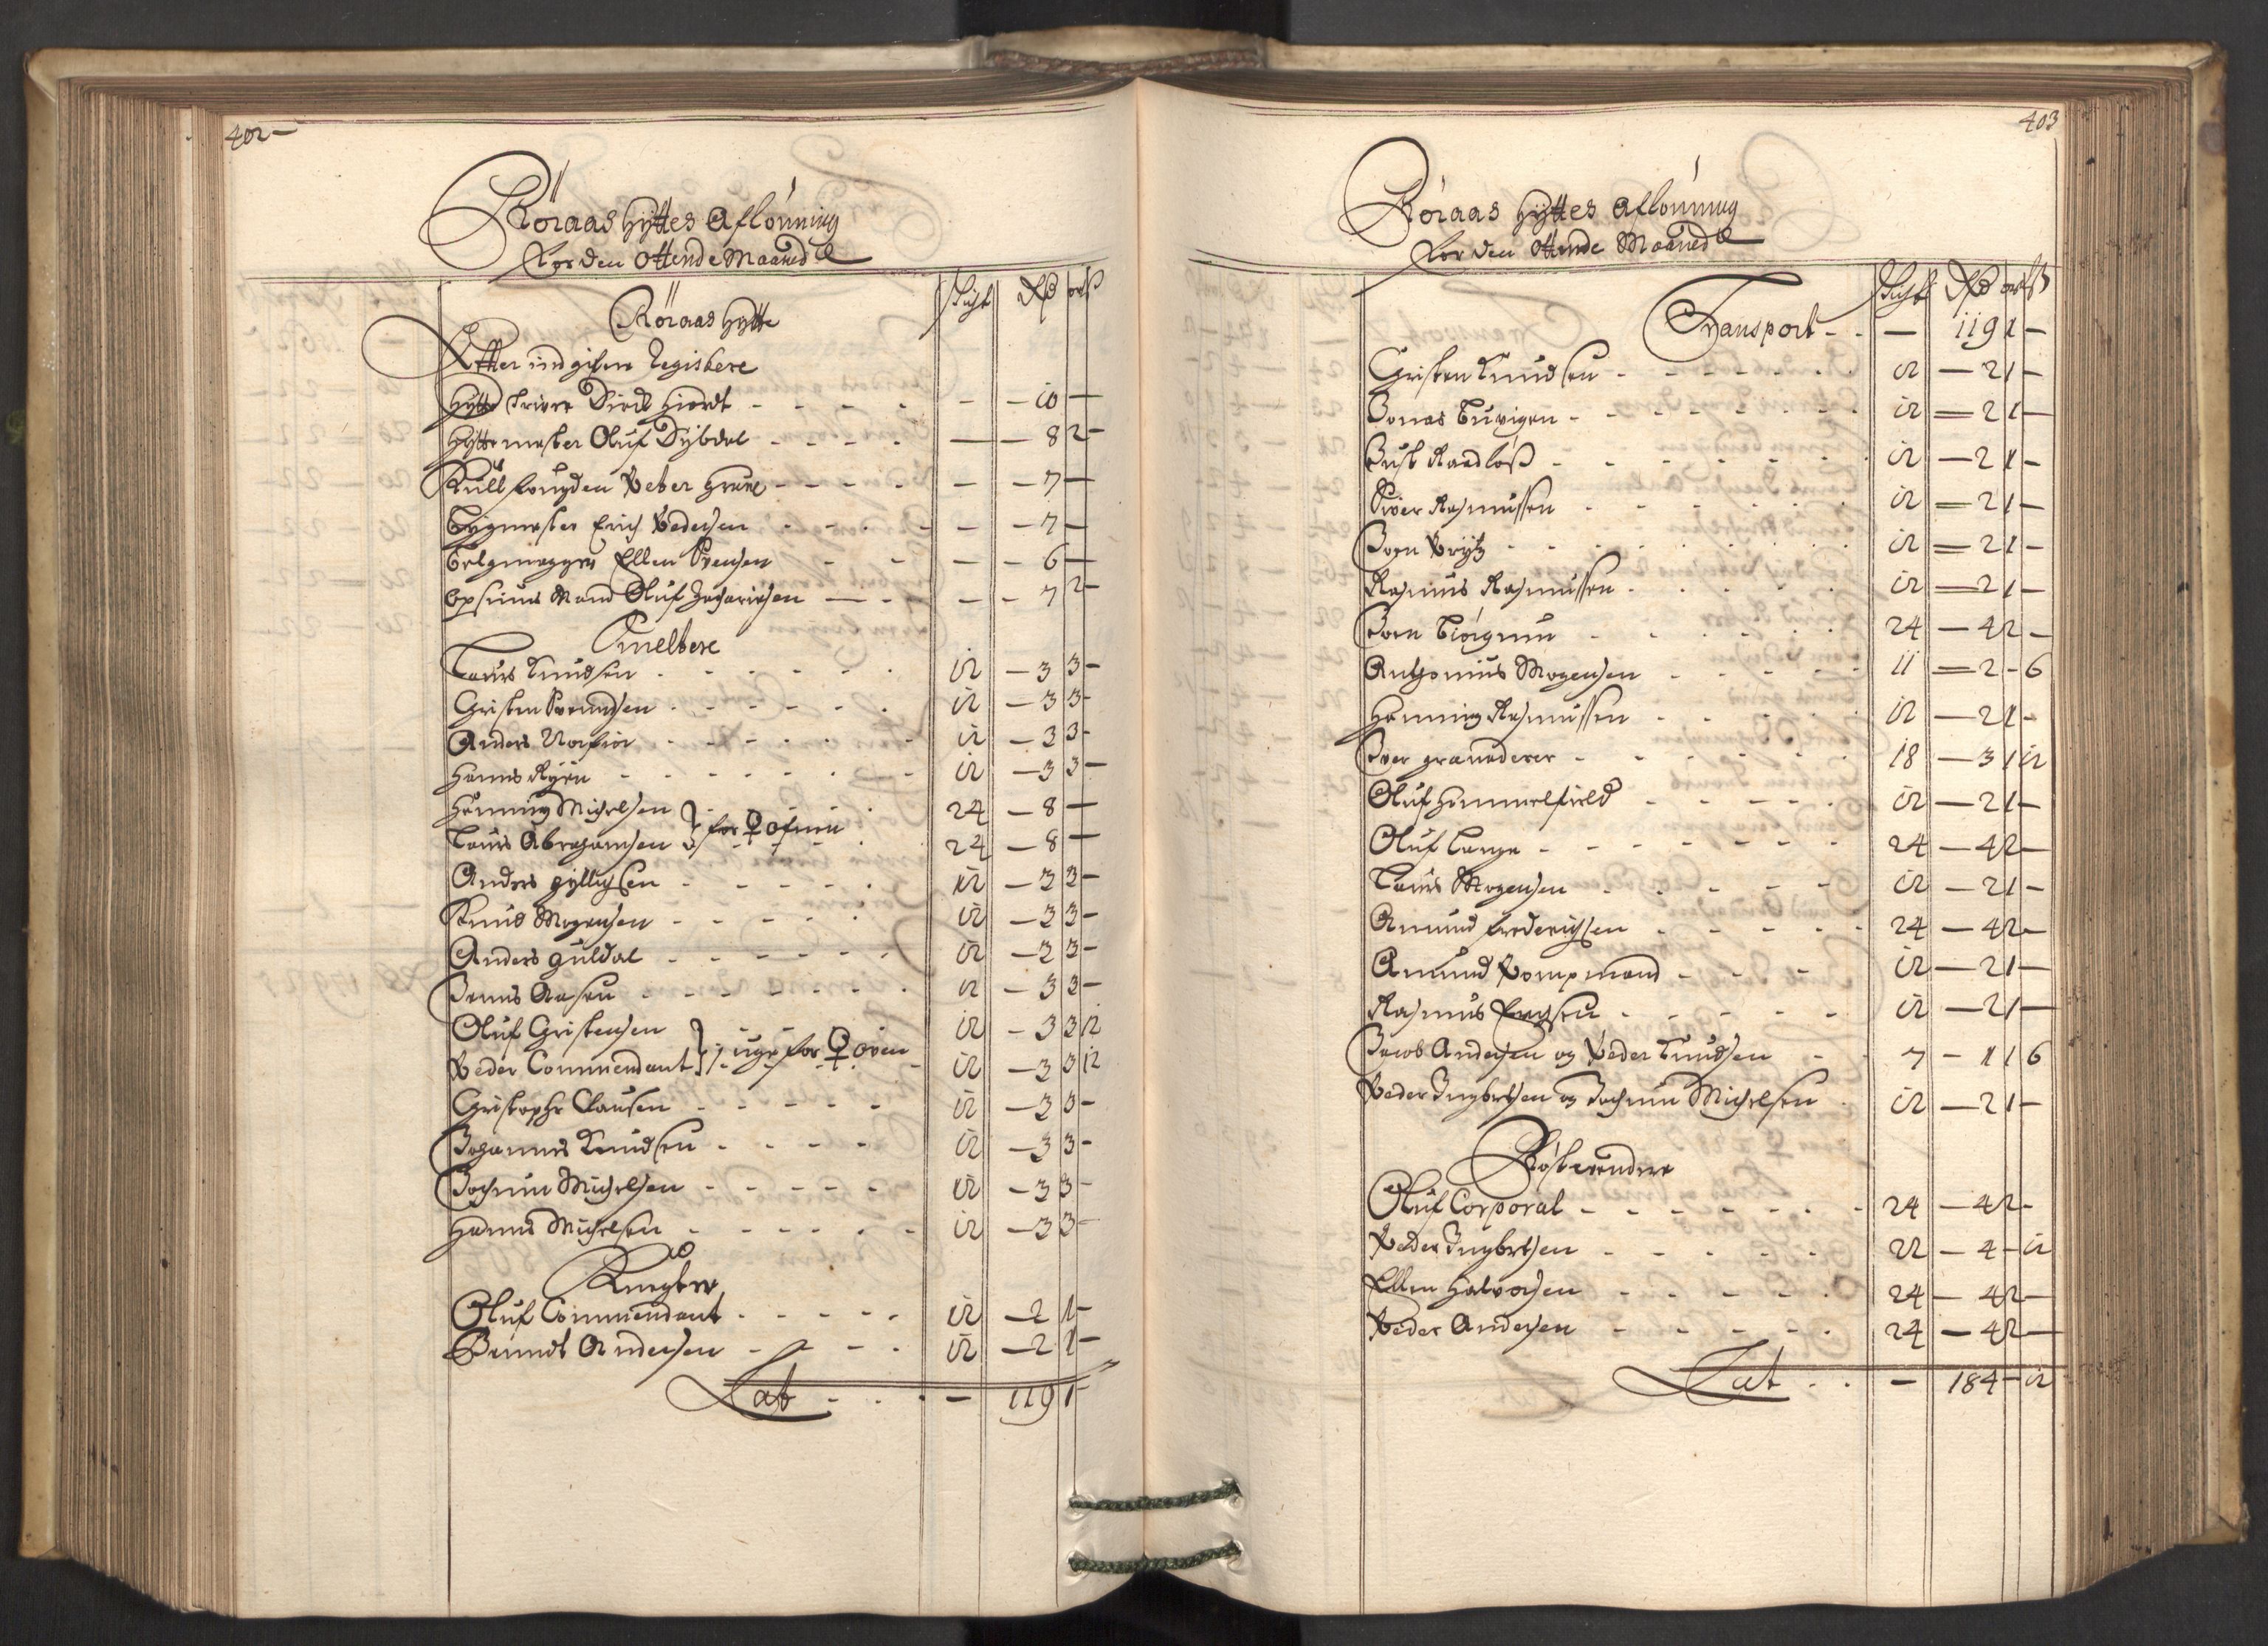 402
Röraas Hyttes Aflönning
For den Ottende Maaned
Schift Rd ort ß
Röraas Hytte
Effter indgifne Registere
Hytteskrifver Diedr Hiordt - - - - - - 10 -
Hyttemester Oluf Dybdal - - - - - - 8 2 -
Kullfougden Peter Grüne - - - - - - 7 -
Bygmester Erich Pedersen - - - - - - 7 -
Belgmager Ellen Svensen - - - - 6 -
Opsiuns Mand Oluf Zachariesen - - - - 7 2 -
Smeltere
Laurs Knudsen - - - - - 12 - 3 3 -
Christen Svendsen - - - - - - 12 - 3 3 -
Anders - - - - - - 12 - 3 3 -
Hanns Ryen - - - - - - - 12 - 3 3 -
Henning Michelsen } for ♀ ofnen 24 - 8 -
Laurs Abrahamsen } 24 - 8 -
Anders Gyllichsen - - - - - 12 - 3 3 -
Knud Mogensen - - - - - 12 - 3 3 -
Anders Guldal - - - - - - 12 - 3 3 -
Jenns Aasen - - - - - - - 12 - 3 3 -
Oluf Christensen } 12 - 3 3 12
Peder Commendant } 1 uge for ♀ oven 12 - 3 3 12
Christopher Clausen - - - - - 12 - 3 3 -
Johannes Knudsen - - - - 12 - 3 3 -
Jochum Michelsen - - - - - 12 - 3 3 -
Hanns Michelsen - - - - - - 12 - 3 3 -
Knegter
Oluf Commendant - - - - - 12 - 2 1 -
Berndt Andersen - - - - 12 - 2 1 -
Lat - - - - 119 1 -
403
Röraas Hyttes Aflönning
For den Ottende Maaned
Schift Rd ort ß
Transport - - - 119 1 -
Christen Knudsen - - - - - - 12 - 2 1 -
Jonas Tuvigen - - - - - - - 12 - 2 1 -
Just Raadløß - - - - - - - 12 - 2 1 -
Siver Rasmussen - - - - - - 12 - 2 1 -
Joen Brytz - - - - - - - - 12 - 2 1 -
Rasmus Rasmussen - - - - - 12 - 2 1 -
Joen - - - - - - 24 - 4 2 -
Anthonius Mogensen - - - - - 11 - 2 - 6
Henning Rasmussen - - - - - 12 - 2 1 -
Iver Granederer - - - - - - 18 - 3 1 12
Oluf Hommelfield - - - - - 12 - 2 1 -
Oluf Lange - - - - - - - 24 - 4 2 -
Laurs Mogensen - - - - - 12 - 2 1 -
Amund Frederichsen - - - - - 24 - 4 2 -
Amund Pompmand - - - - 12 - 2 1 -
Rasmus Ericksen - - - - - 12 - 2 1 -
Jacob Andersen og Peder Knudsen - - 7 - 1 1 6
Peder Ingebretsen og Jochum Michelsen 12 - 2 1 -
Röstevendere
Oluf Corporal - - - - - - - 24 - 4 2 -
Peder Ingebretsen - - - - - 22 - 4 - 12
Ellen Halvorsen - - - - - - 24 - 4 2 -
Peder Andersen - - - - - 24 - 4 2 -
Lat - - - 184 - 12